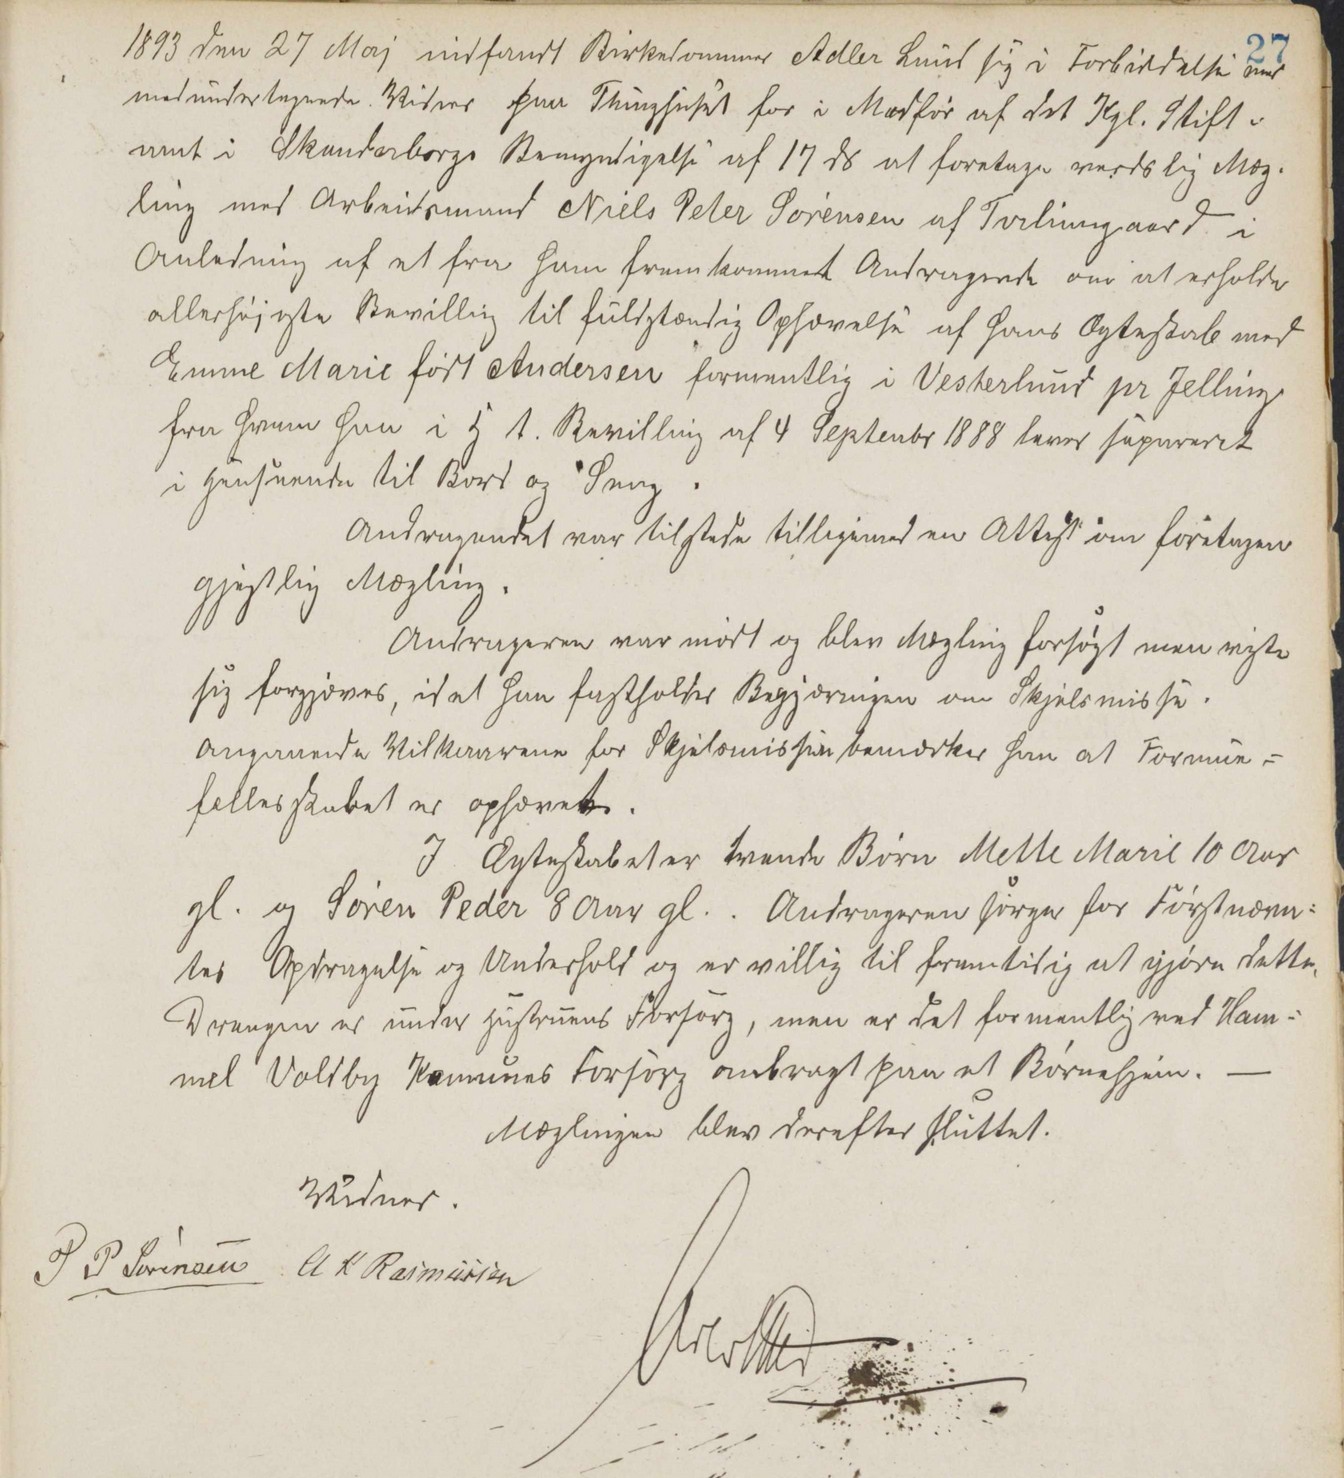 27
1893 den 27 Maj indfandt Birkedommer Adler Lund sig i Forbindelse med
medundertegnede Vidner paa Thinghuset for i Medfør af det Kgl. Stift-
amt i Skanderborgs Bemyndigelse af 17 ds at foretage verdslig Mæg-
ling med Arbeidsmand Niels Peter Sørensen af Tvilumgaard i
Anledning af et fra ham fremkommet Andragende om at erholde
allerhøjeste Bevilling til fuldstændig Ophævelse af hans Ægteskab med
Emme Marie født Andersen formentlig i Vesterlund pr Jelling
fra hvem han i H t. Bevilling af 4 Septembr 1888 lever separeret
i Henseende til Bord og Seng.
Andragendet var tilstede tilligemed en Attest om foretagen
gjejstlig Mægling.
Andrageren var mødt og blev Mægling forsøgt men viste
sig forgjæves, idet han fastholder Begjæringen om Skjelsmisse.
Angaaende Vilkaarene for Skjelsmissen bemærker han at Formue=
fellesskabet er ophævet.
I Ægteskabet er tvende Børn Mette Marie 10 Aar
gl. og Søren Peder 8 Aar gl.. Andrageren sørger for Førstnævn=
tes Opdragelse og Underhold og er villig til fremtidig at gjøre dette.
Drengen er under Hustruens Forsorg, men er det formentlig ved Ham=
mel Voldby Komunes Forsorg anbragt paa et Børnehjem. —
Mæglingen blev derefter sluttet.
Vidner.
P P Sørensen A K Rasmussen